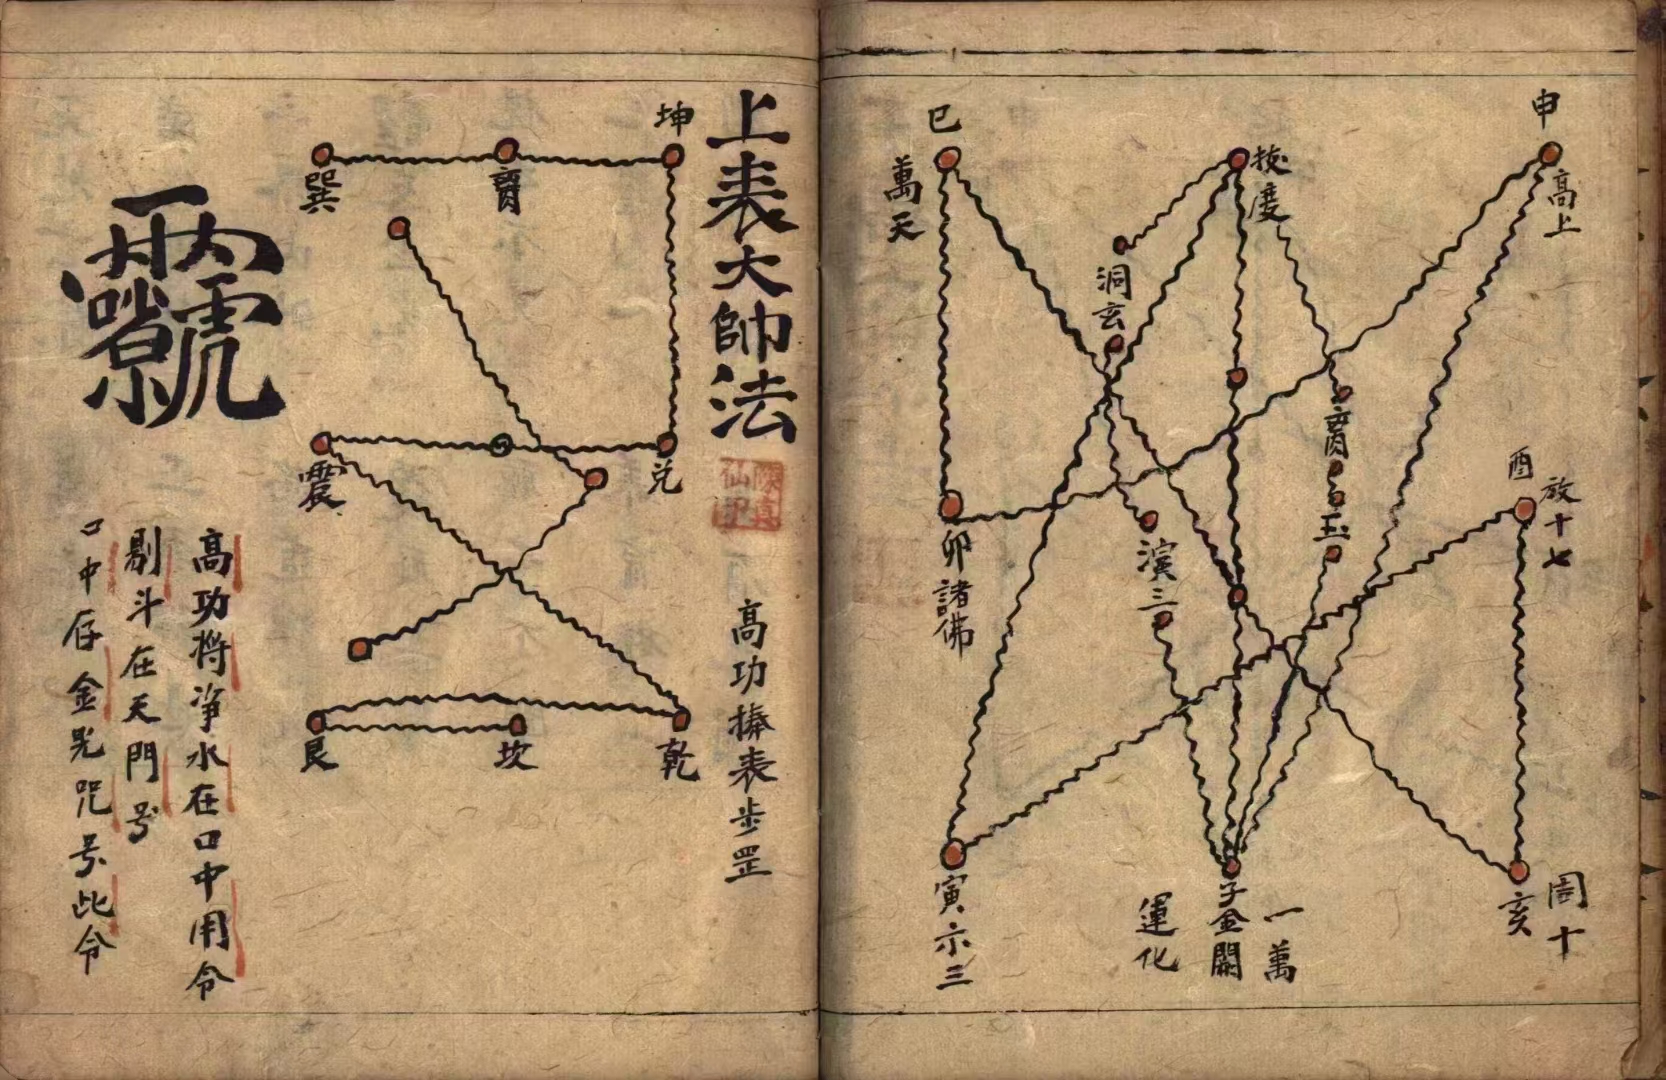 申
高上
酉
放十七
亥
周十
度
齎
玉
一萬
子金闕
運化
洞玄
演三
巳
萬天
卯諸佛
寅示三
上表大帥法
高功捧表步罡
坤
兌
乾
齎
坎
巽
震
艮
高功將淨水在口中用令
剔斗在天門号
口中存金光咒号此令